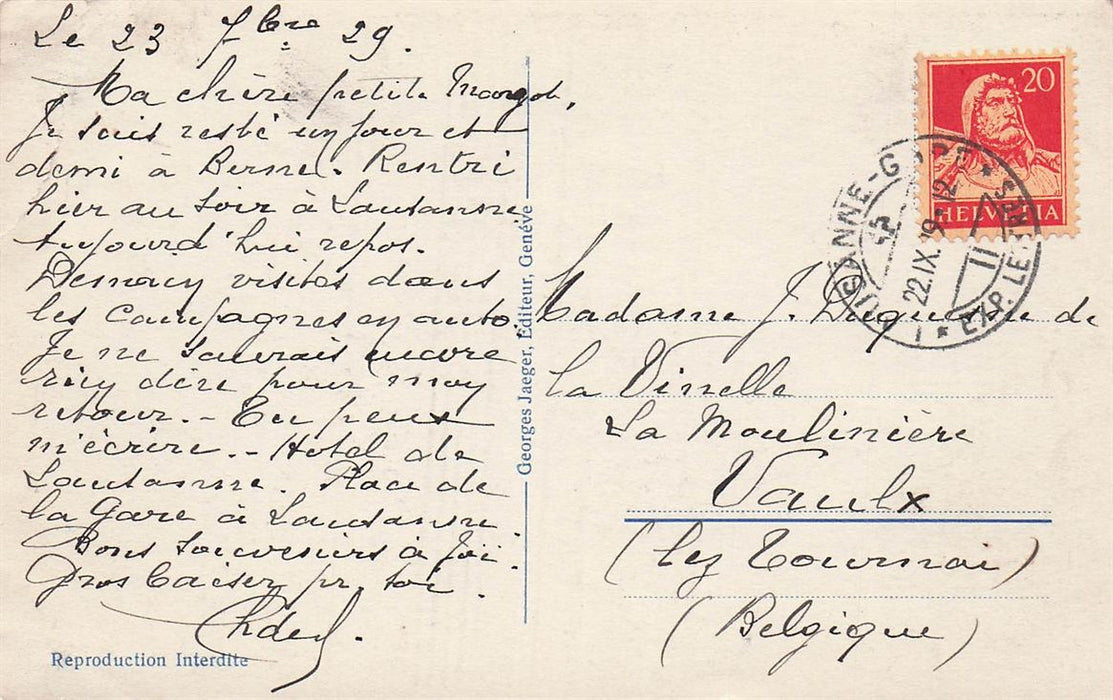 Le 23 7bre 29.
Ma chère petite Margot,
Je suis resté un jour et
demi à Berne. Rentri
hier au soir à Lausanne
Aujourd'hui repos.
Demain visites dans
les Campagnes en auto.
Je ne saurais encore
rien dire pour mon
retour. - Tu peux
m'écrire. - Hotel de
Lausanne. Place de
la Gare à Lausanne
Bons souvenirs à
Gros baiser pr toi.
Reproduction Interdite
Georges Jaeger, Editeur, Genève
20
HELVETIA
LAUSANNE-GARE
22.IX.29-12
II
EXP. LETTRES
1
Madame J. de
la Vinelle
La Moulinière
Vaulx
(lez Tournai)
(Belgique)